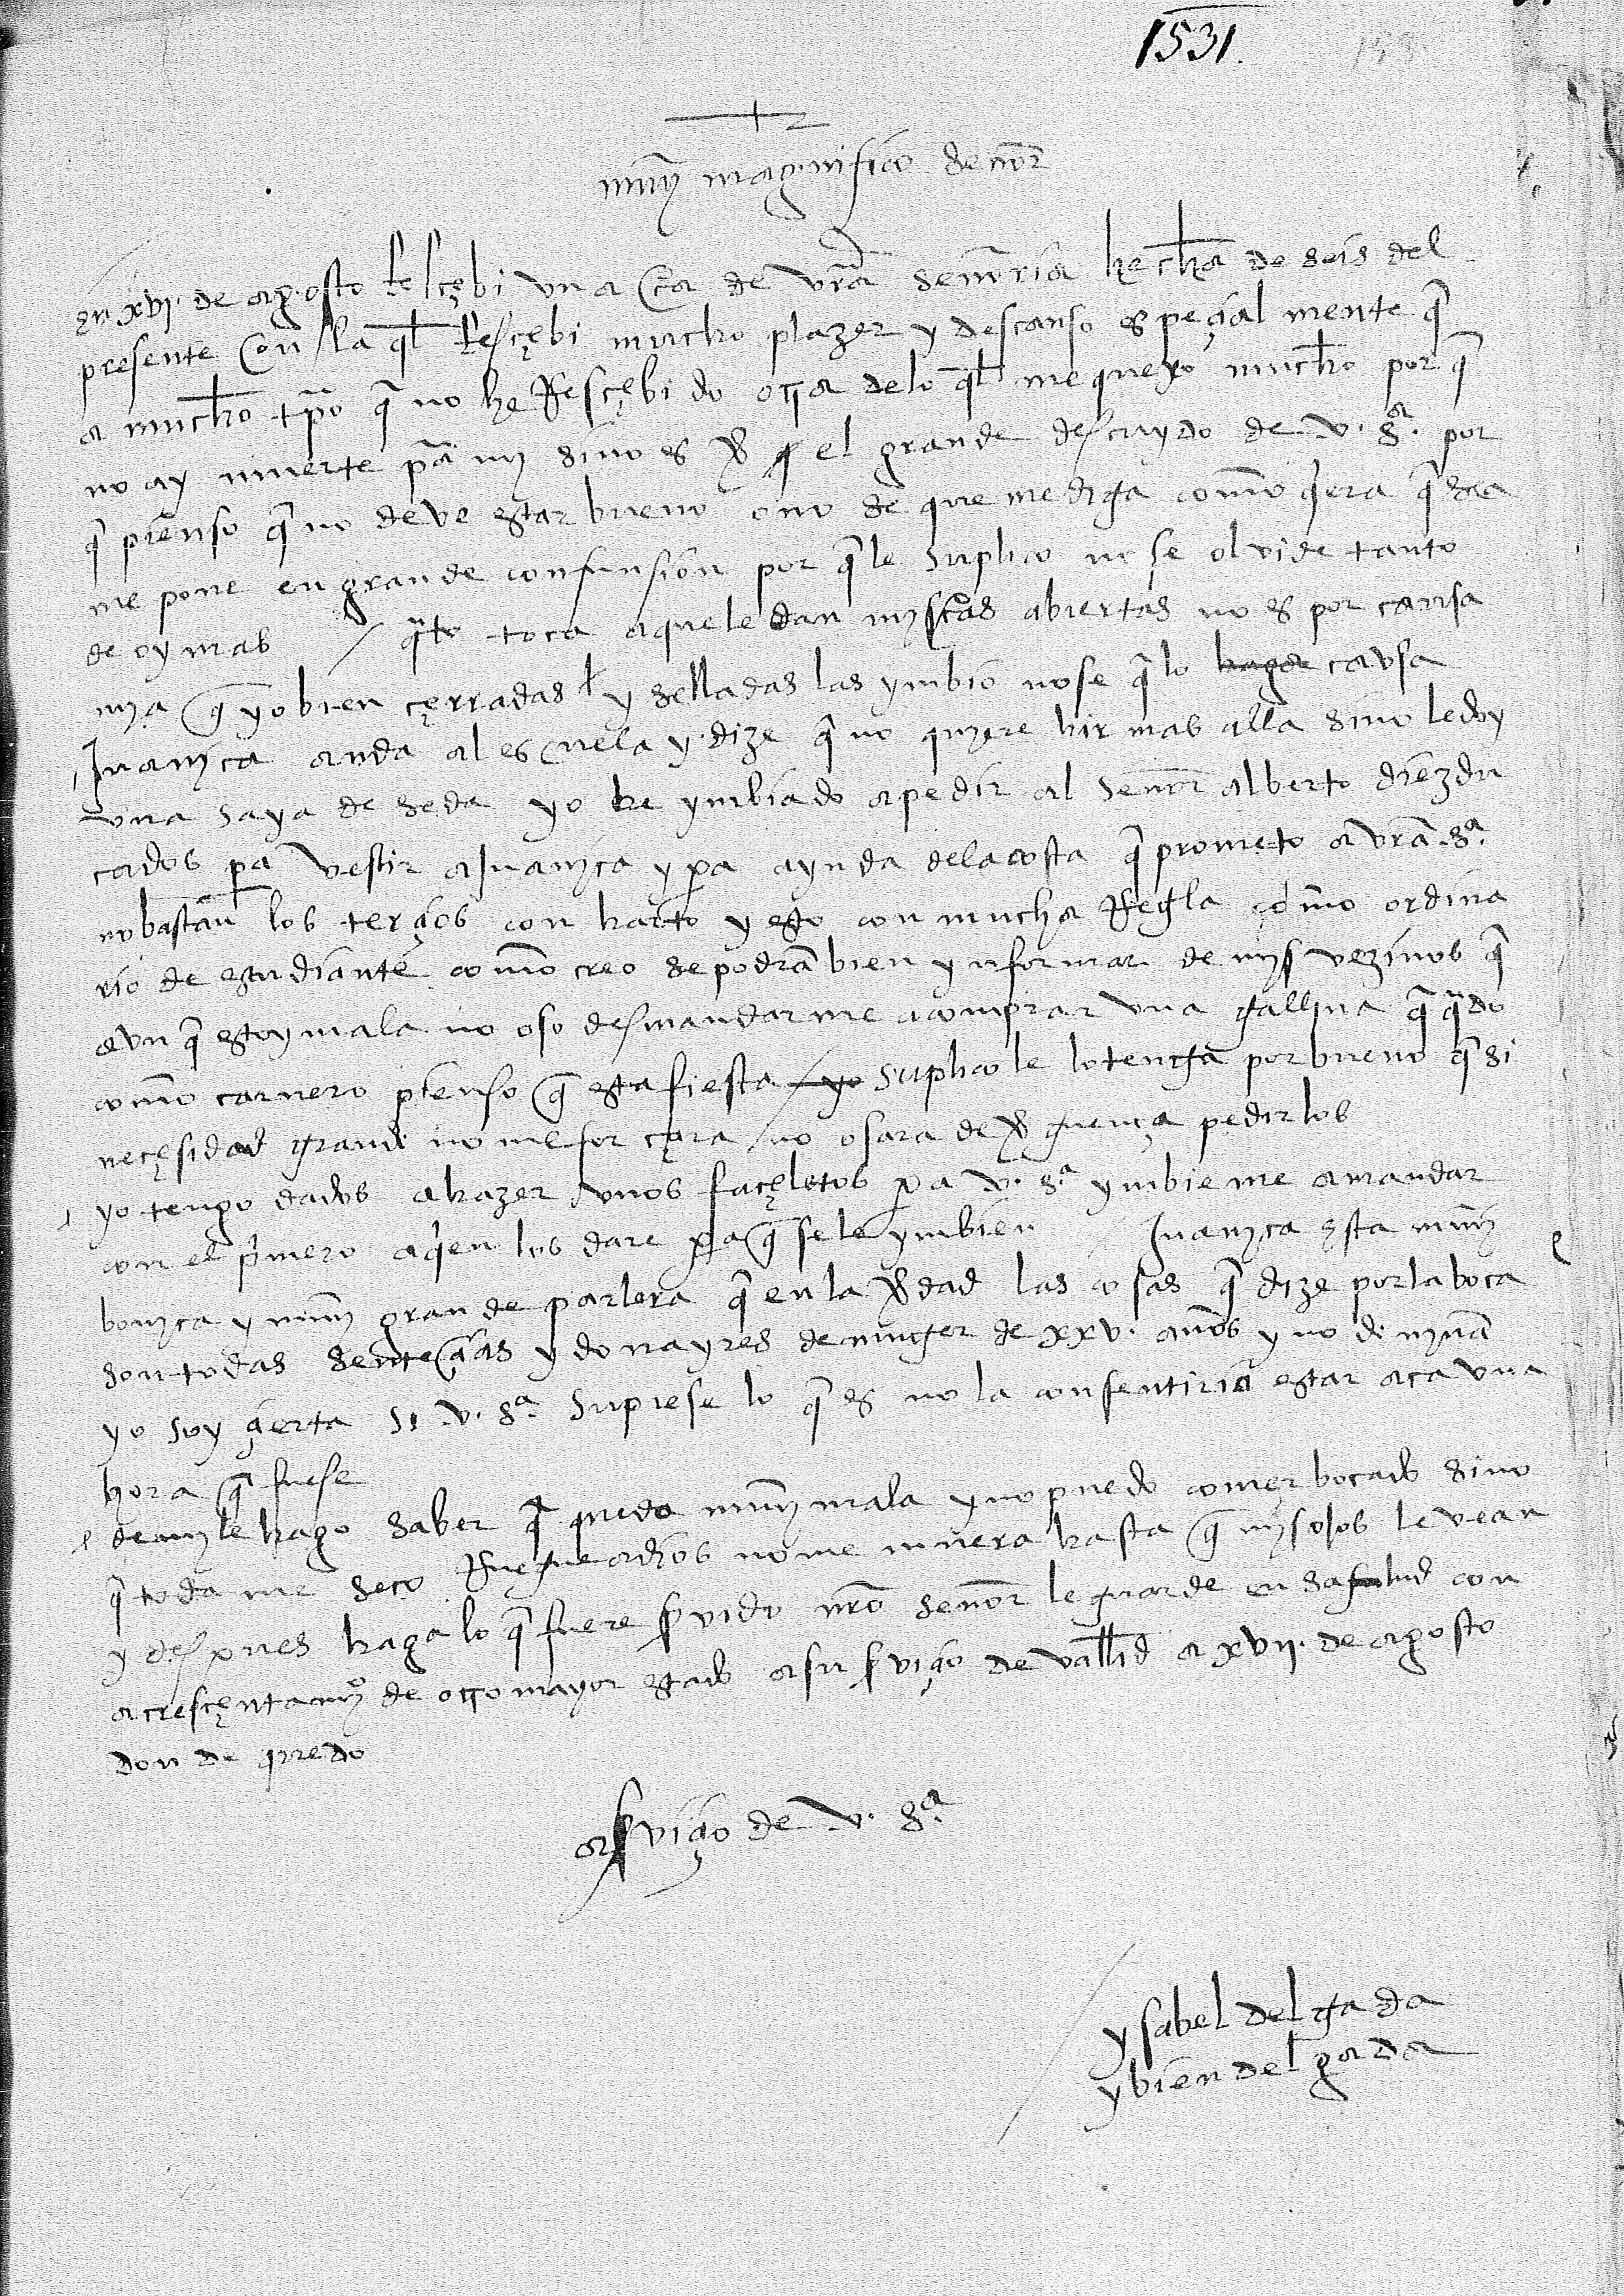 1531.
muy magnifico señor
en xvj. de agosto Resçebi vna cta de vra señoria hecha de seis del
presente con la ql Resçebi mucho plazer y descanso espeçial mente q̃
a mucho tpo q̃ no he Resçebido otra de lo ql me quexo mucho por q̃
no ay muerte pa my sino es el grande descuydo de v. sa. por
q̃ pienso q̃ no deve estar bueno o no de que me diga como q̃era q̃ sea
me pone en grande confunsion por q̃ le suplico no se olvide tanto
de oy mas / qto toca a que le dan mys ctas abiertas no es por cavsa
mya q̃ yo bien çerradas y selladas las ymbio no se q̃ lo cavsa
Juanyca anda al escuela y dize q̃ no quyere hir mas alla sino le doy
vna saya de seda yo he ymbiado a pedir al señor alberto diez du
cados pa vestir a Juanyca y pa ayuda de la costa q̃ prometo a vra. sa.
no bastan los terçios con harto y esto con mucha Regla como ordina
rio de estudiante como creo se podra bien ynformar de mys vezinos q̃
avn q̃ estoy mala no oso desmandarme a comprar vna gallina q̃ qdo
como carnero pienso q̃ esta fiesta / yo suplico le lo tenga por bueno q̃ si
neçesidad grande no me forçara no osara de ṽguença pedirlos
yo tengo dados a hazer vnos façeletos pa v. sa ymbie me a mandar
con el p̃mero a q̃en los dare pa q̃ se le ymbien / Juanyca esta muy
bonyca y muy grande parlera q̃ en la ṽdad las cosas q̃ dize por la boca
son todas senteçias y donayres de muger de xxv. años y no de nyña
yo soy çierta si v. sa. supiese lo q̃ es no la consentiria estar aca vna
hora q̃ fuese
de my le hago saber q̃ quedo muy mala y no puedo comer bocado sino
q̃ toda me seco Ruegue a dios no me muera hasta q̃ mys ojos le vean
y despues haga lo q̃ fuere s̃vido nro señor le guarde en salud con
acresçentamyo de otro mayor estado a su s̃viçio de vallid a xvij. de agosto
don de quedo
a s̃viçio de v. sa
ysabel delgada
y bien delgada